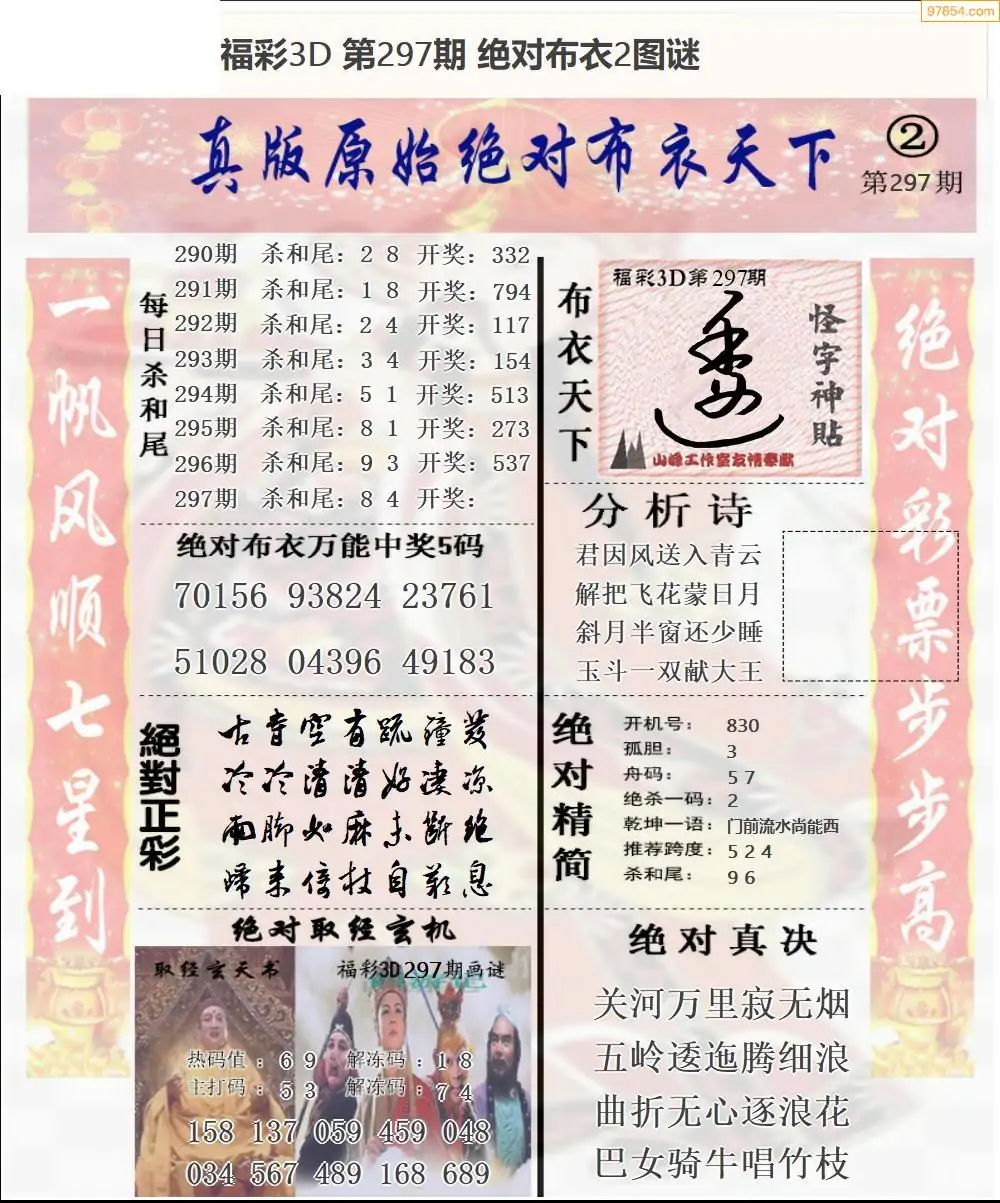 97654.com
福彩3D 第297期 绝对布衣2图谜
真版原始绝对布衣天下
②
第297期
一帆风顺七星到
每日杀和尾
290期 杀和尾：2 8 开奖：332
291期 杀和尾：1 8 开奖：794
292期 杀和尾：2 4 开奖：117
293期 杀和尾：3 4 开奖：154
294期 杀和尾：5 1 开奖：513
295期 杀和尾：8 1 开奖：273
296期 杀和尾：9 3 开奖：537
297期 杀和尾：8 4 开奖：
绝对布衣万能中奖5码
70156 93824 23761
51028 04396 49183
絕對正彩
古寺空有疏
冷冷清清好凄凉
雨脚如麻未断绝
归来倚杖自叹息
绝对取经玄机
取经玄天书
福彩3D297期画谜
热码值：6 9 解冻码：1 8
主打码：5 3 解冻码：7 4
158 137 059 459 048
034 567 489 168 689
布衣天下
福彩3D第297期
怪字神貼
山峰工作室友情奉献
分析诗
君因风送入青云
解把飞花蒙日月
斜月半窗还少睡
玉斗一双献大王
绝对精简
开机号： 830
孤胆： 3
舟码： 5 7
绝杀一码：2
乾坤一语：门前流水尚能西
推荐跨度：5 2 4
杀和尾： 9 6
绝对真决
关河万里寂无烟
五岭逶迤腾细浪
曲折无心逐浪花
巴女骑牛唱竹枝
绝对彩票步步高